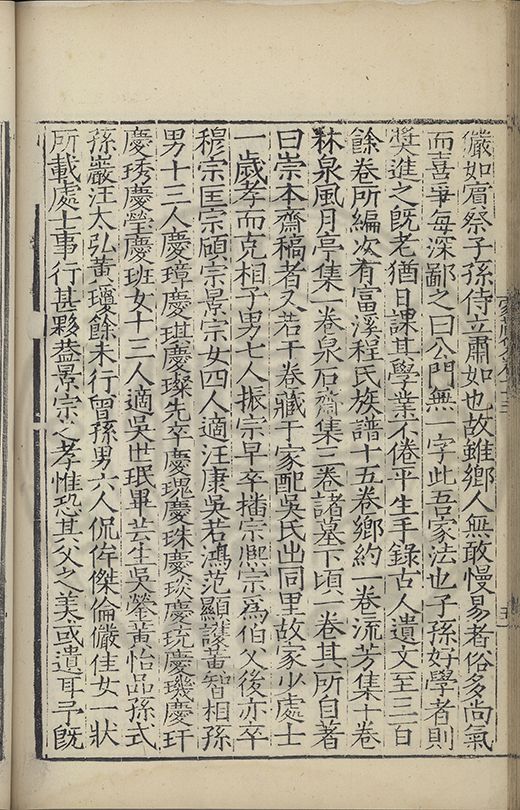 儼如賔祭子孫侍立肅如也故雖鄉人無敢慢易者俗多尚氣
而喜爭每深鄙之曰公門無一字此吾家法也子孫好學者則
奬進之旣老猶日課其學業不倦平生手錄古人遺文至三百
餘卷所編次有富溪程氏族譜十五卷鄉約一卷流芳集十卷
林泉風月亭集一卷泉石齋集三卷諸墓下頃一卷其所自著
曰崇本齋稿者又若干卷藏于家配吳氏出同里故家少處士
一歲孝而克相子男七人振宗早卒播宗熈宗為伯父後亦卒
穆宗匡宗碩宗景宗女四人適汪康吳若鴻范顯謨黃智相孫
男十三人慶璋慶琪慶璨先卒慶瑰慶珠慶琰慶珫慶璣慶玕
慶琇慶瑩慶班女十三人適吳世珉畢芸生吳縈黃怡品孫式
孫巖汪太弘黃瓊餘未行曾孫男六人侃侔傑倫儼佳女一狀
所載處士事行甚夥葢景宗之孝惟恐其父之美或遺耳予旣